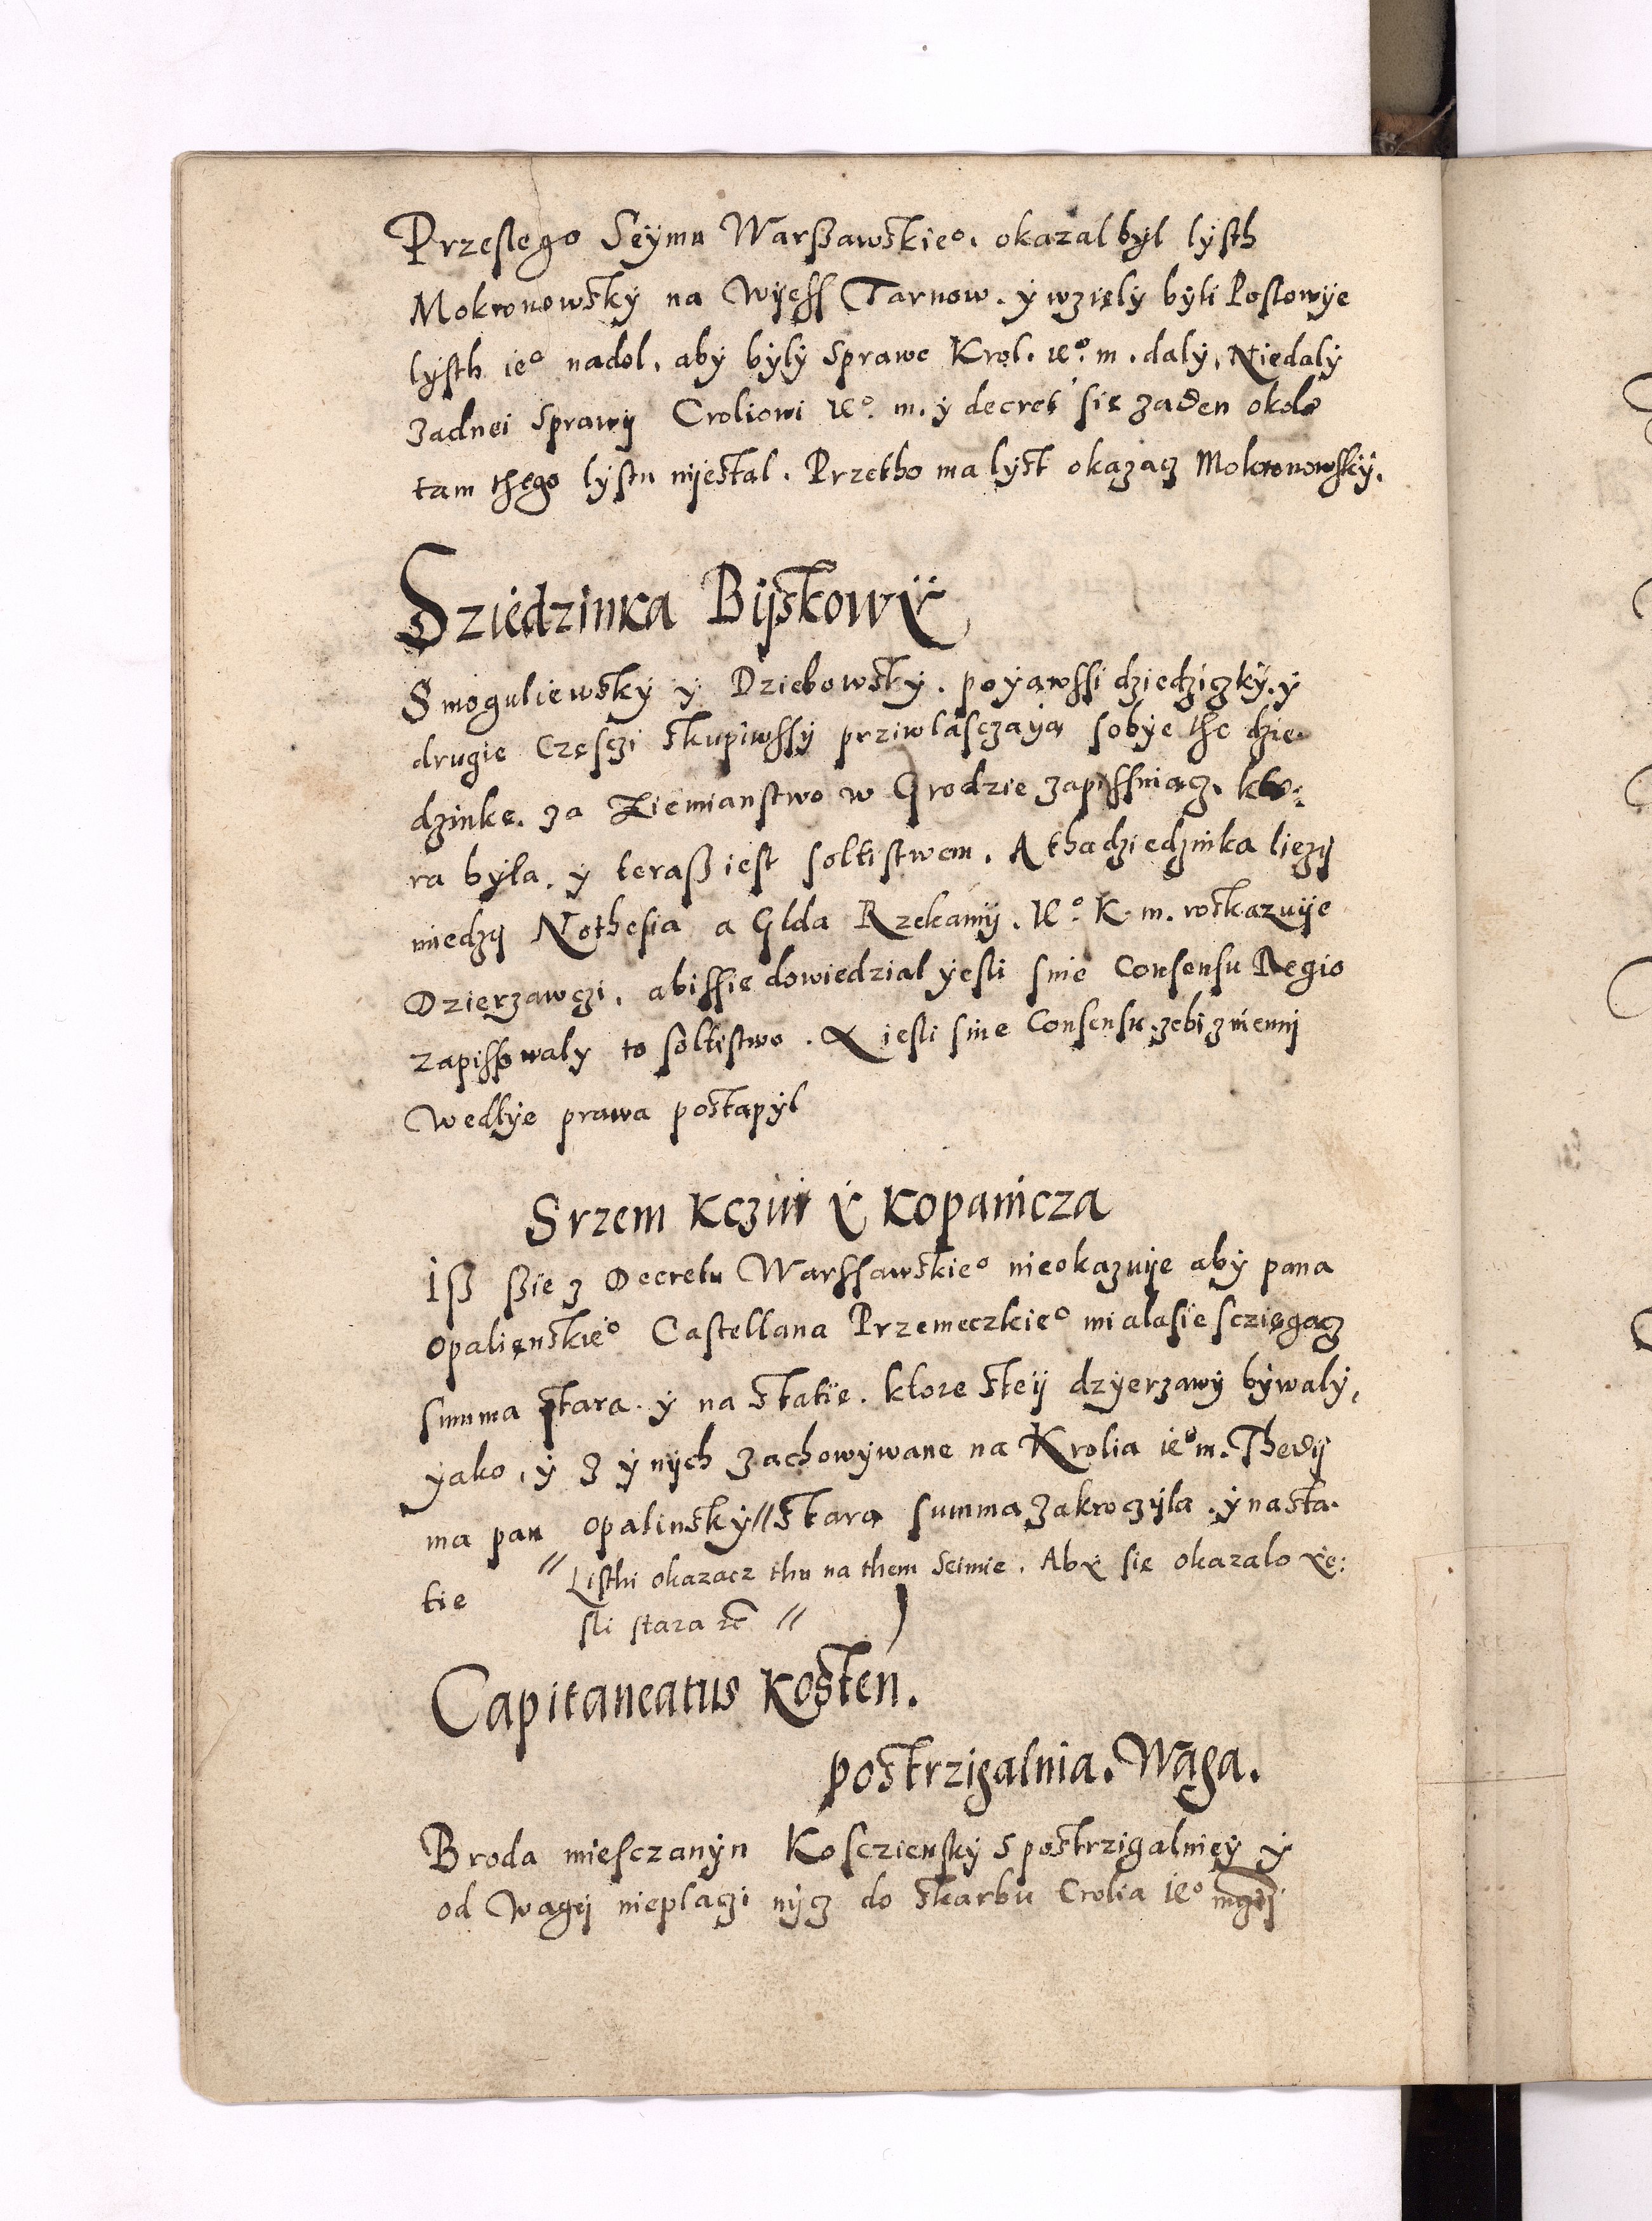 Przeslego Seÿmu Warßawskie°. okazal bÿl lÿsth
Mokronowskÿ na Wÿess Tarnow. ÿ wzięlÿ bÿli Poslowÿe
lÿsth ie° nadol, abÿ bÿlÿ Sprawę Krol. ie°. m. dalÿ, Niedalÿ
zadnei Sprawÿ Croliowi ie°. m. ÿ decret się zaden okolo
tam thego lÿstu nÿestal. Przetho ma lÿst okazacz Mokronowskÿ.
Dziedzinka Bÿskowÿ
Smoguliewskÿ ÿ Dziebowskÿ. poÿawssi dziedziczkÿ. ÿ
drugie częsczi skupiwssÿ prziwlasczaÿą sobÿe thę dzie
dzinkę. za Ziemianstwo w Grodzie zapissuiącz. kto:
ra bÿla. ÿ teraß iest soltistwem. A tha dziedzinka liezÿ
miedzÿ Nothesią a Glda Rzekamÿ. ie°. K. m. roskazuÿe
Dzierzawczi. abissie dowiedzial ÿesli sine Consensu Regio
zapissowalÿ to soltistwo. A iesli sine Consensu. zebi z niemi
Wedlÿe prawa postąpÿl
Srzem Kczin ÿ Kopanicza
Iß ßie z Decretu Warssawskie° nieokazuÿe abÿ pana
Opalienskie° Castellana Przemeczkie° miala się scziągacz
summa stara. ÿ na Statie. ktore Steÿ dzÿerzawÿ bÿwalÿ,
ÿako, ÿ z ÿnÿch zachowÿwane na Krolia ie° m. Thedÿ
ma pan Opalinskÿ // Stara summa zakroczÿla. ÿ na sta.
tie // Listhi okazacz thu na them Seimie. Abÿ się okazalo ÿe:
sli stara etc //
Capitaneatus Kosten.
postrzigalnia. Waga.
Broda miesczanÿn Kosczienskÿ s postrzigalnieÿ ÿ
od Wagÿ nieplaczi nÿcz do Skarbu Crolia ie° mczi